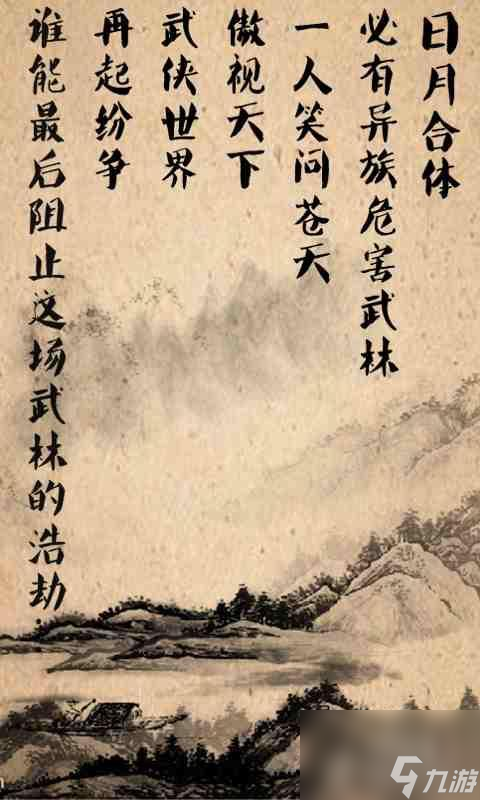 日月合体
必有异族危害武林
一人笑问苍天
傲视天下
武侠世界
再起纷争
谁能最后阻止这场武林的浩劫.
九游